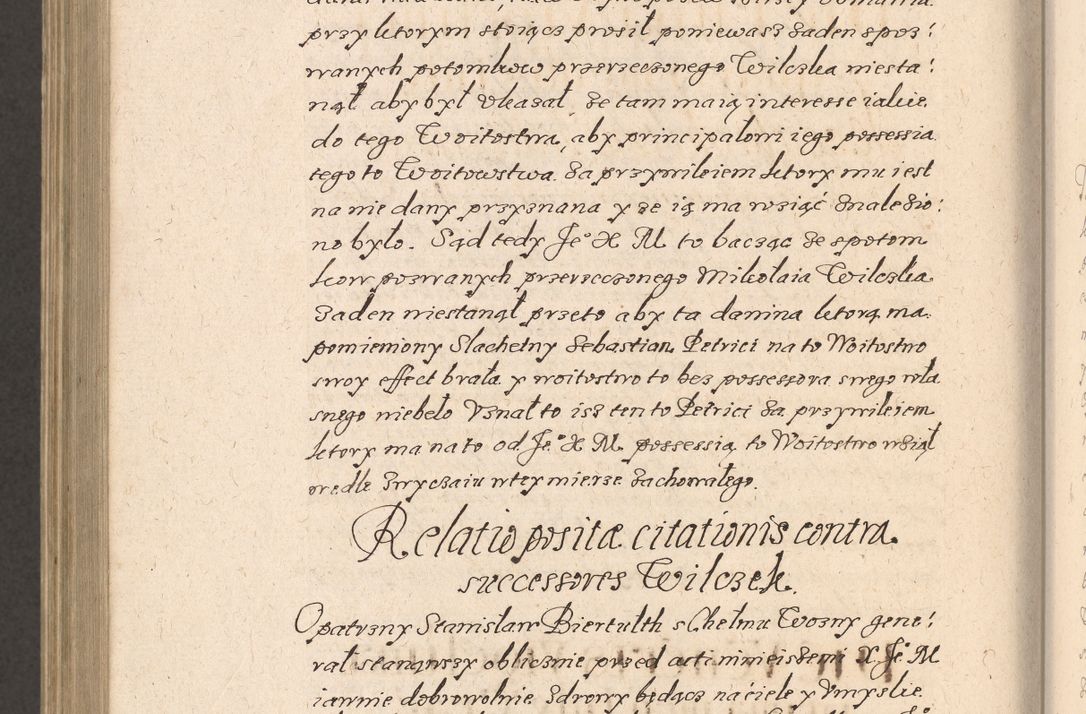 przy ktorym stoiącz prosił poniewasz żaden z poz:
wanych potomkow przerzeczonego Wilczka niesta:
nął aby był Vkazał, że tam maią interesse iakie
do tego Woitostwa, aby principałowi iego possessia
tego to Woitowstwa. za przywileiem ktory mu iest
na nie dany przyznana y że ią ma wziąć znalezio:
no było. Sąd tedy Je° X M to bacząc że z potom
kow pozwanych przerzeczonego Mikołaia Wilczka
żaden niestanął przeto aby ta danina ktorą ma
pomieniony Slachetny Sebastian Petrici na to Woitostwo
swoy effect brała y woitostwo to bez possessora swego wła
snego niebeło Vznał to isz ten to Petrici za przywileiem
ktory ma na to od Je° X M possessią to Woitostwo wziął
wedle zwyczaiu w tey mierze zachowałego.
Relatio positæ citationis contra
successores Wilczek.
Opatrzny Stanisław Biertulth z Chełmu Wozny gene:
rał stanąwszy oblicznie przed acti ninieiszemi X Je° M
iawnie dobrowolnie zdrowy będącz na ciele y Vmyslie